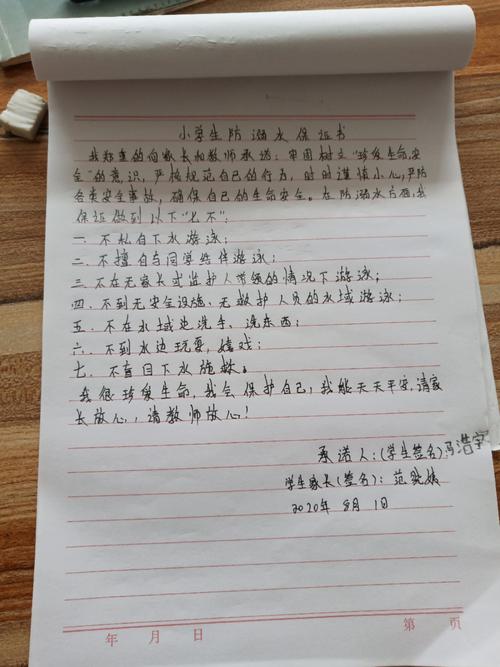 小学生防溺水保证书
我郑重的向家长和教师承诺：牢固树立“珍爱生命，安
全”的意识，严格规范自己的行为，时时谨慎小心，严防
各类安全事故，确保自己的生命安全。在防溺水方面，我
保证做到以下“七不”：
一．不私自下水游泳；
二．不擅自与同学结伴游泳；
三．不在无家长或监护人带领的情况下游泳；
四．不到无安全设施、无救护人员的水域游泳；
五．不在水域边洗手、洗东西；
六．不到水边玩耍，嬉戏；
七．不盲目下水施救。
我很珍爱生命，我会保护自己；我能天天平安，请家
长放心，请教师放心！
承诺人：(学生签名)冯浩宇
学生家长(签名)：范
2020年8月1日
年 月 日 第 页